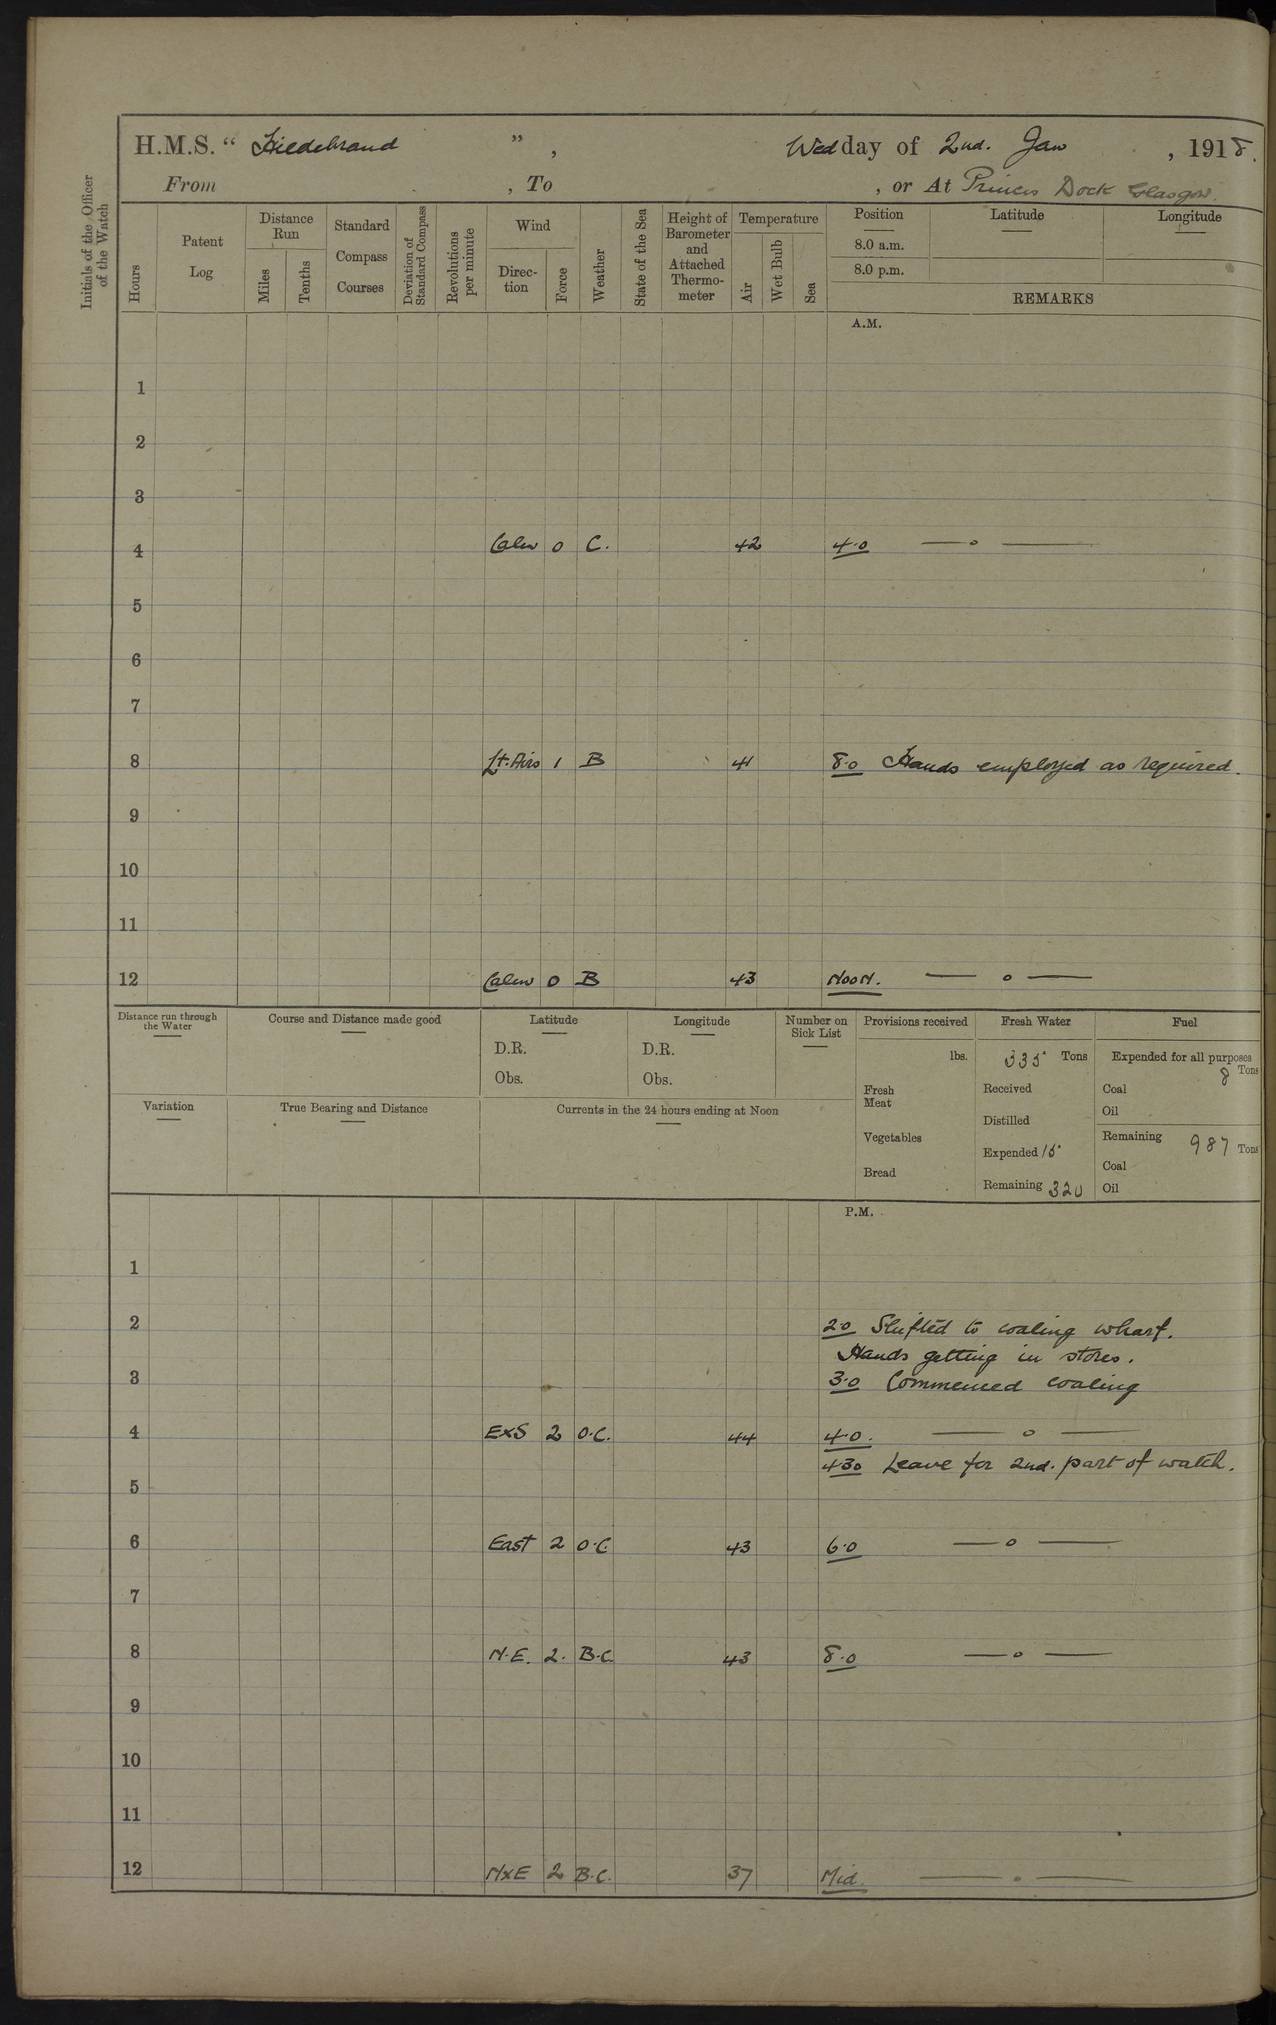 H.M.S. “ Hildebrand ” , Wed day of 2nd. Jan , 1918.
From , To , or At Princes Dock Glasgow.
Initials of the Officer of the Watch
Hours
Patent Log
Distance Run
Miles
Tenths
Standard Compass Courses
Deviation of Standard Compass
Revolutions per minute
Wind
Direc-tion
Force
Weather
State of the Sea
Height of Barometer and Attached Thermo-meter
Temperature
Air
Wet Bulb
Sea
Position Latitude Longitude
8.0 a.m.
8.0 p.m.
REMARKS
A.M.
1
2
3
4 Calm 0 C. 42 4.0 — o —
5
6
7
8 Lt. Airs 1 B 41 8.0 Hands employed as required.
9
10
11
12 Calm 0 B 43 Noon. — o —
Distance run through the Water
Course and Distance made good
Latitude
D.R.
Obs.
Longitude
D.R.
Obs.
Number on Sick List
Provisions received
lbs.
Fresh Meat
Vegetables
Bread
Fresh Water
335 Tons
Received
Distilled
Expended 15
Remaining 320
Fuel
Expended for all purposes
8 Tons
Coal
Oil
Remaining 987 Tons
Coal
Oil
Variation
True Bearing and Distance
Currents in the 24 hours ending at Noon
P.M.
1
2 2.0 Shifted to coaling wharf.
Hands getting in stores.
3 3.0 Commenced coaling
4 ExS 2 O.C. 44 4.0. — o —
4.30 Leave for 2nd. part of watch.
5
6 East 2 O.C. 43 6.0 — o —
7
8 N.E. 2. B.C. 43 8.0 — o —
9
10
11
12 NxE 2 B.C. 37 Mid. — o —